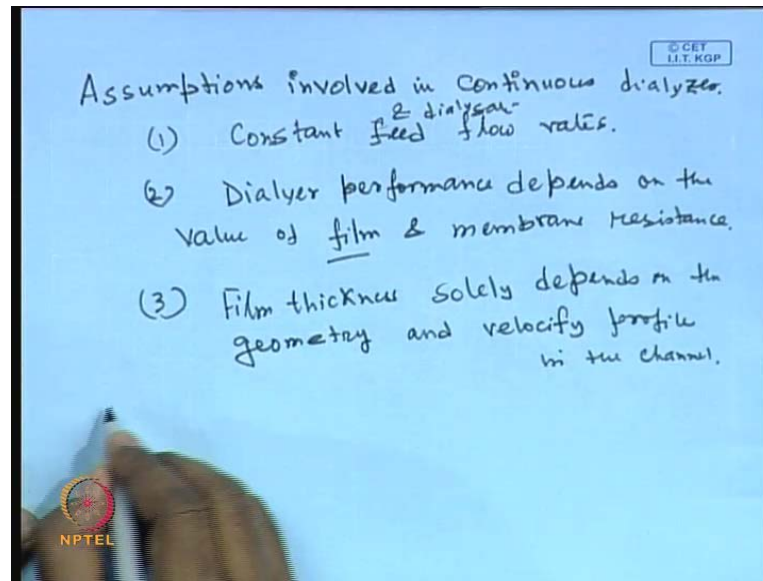 © CET
I.I.T. KGP
Assumptions involved in continuous dialyzer.
(1) Constant feed & dialysate flow rates.
(2) Dialyer performance depends on the
value of film & membrane resistance.
(3) Film thickness solely depends on the
geometry and velocity profile
in the channel.
NPTEL